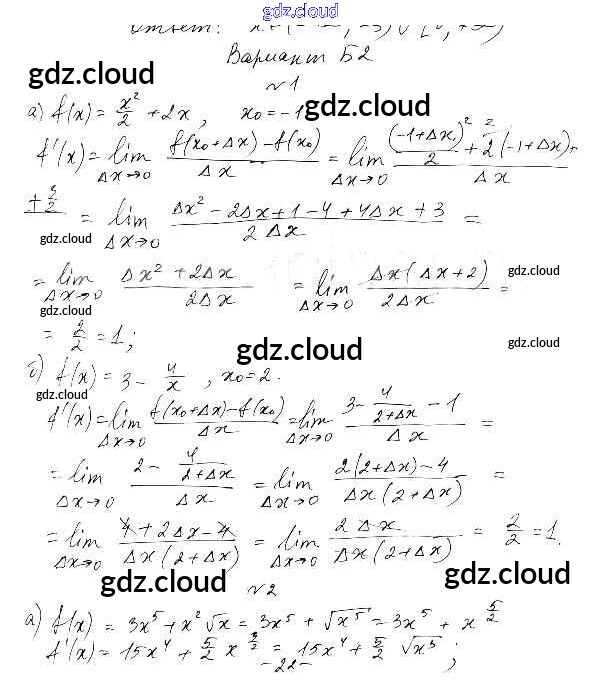 gdz.cloud
Ответ:
Вариант Б2
gdz.cloud
gdz.cloud
№1
а) f(x) = x²/2 + 2x, x₀ = -1
f'(x) = lim Δx→0 (f(x₀+Δx) - f(x₀))/Δx = lim Δx→0 ((-1+Δx)²/2 + 2(-1+Δx) +
+ 3/2)/Δx = lim Δx→0 (Δx² - 2Δx + 1 - 4 + 4Δx + 3)/(2Δx) =
gdz.cloud
= lim Δx→0 (Δx² + 2Δx)/(2Δx) = lim Δx→0 (Δx(Δx+2))/(2Δx) =
gdz.cloud
gdz.cloud
= 2/2 = 1;
gdz.cloud
gdz.cloud
б) f(x) = 3 - 4/x, x₀ = 2.
gdz.cloud
f'(x) = lim Δx→0 (f(x₀+Δx) - f(x₀))/Δx = lim Δx→0 (3 - 4/(2+Δx) - 1)/Δx =
= lim Δx→0 (2 - 4/(2+Δx))/Δx = lim Δx→0 (2(2+Δx) - 4)/(Δx(2+Δx)) =
= lim Δx→0 (4 + 2Δx - 4)/(Δx(2+Δx)) = lim Δx→0 (2Δx)/(Δx(2+Δx)) = 2/2 = 1.
gdz.cloud
gdz.cloud
№2
а) f(x) = 3x⁵ + x²√x = 3x⁵ + √x⁵ = 3x⁵ + x^(5/2)
f'(x) = 15x⁴ + 5/2 x^(3/2) = 15x⁴ + 5/2 √x³;
-22-